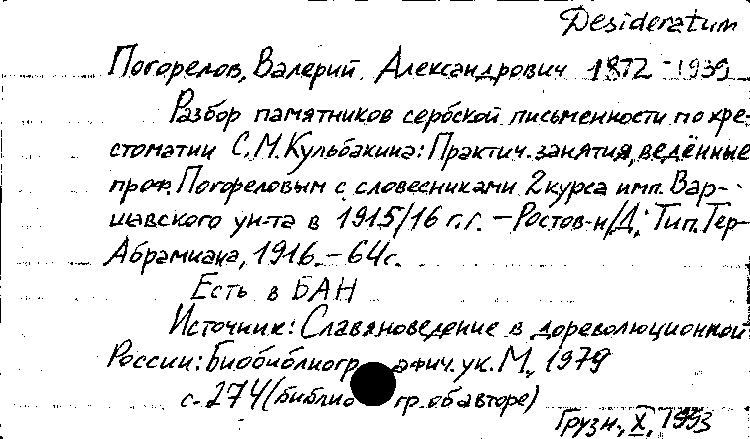 Desideratum
Погорелов, Валерий Александрович 1872-1939
Разбор памятников сербской письменности по хре-
стоматии С.М.Кульбакина: Практич. занятия, ведённые
проф. Погореловым с словесниками 2 курса имп. Вар-
шавского ун-та в 1915/16 г.г. – Ростов-н/Д.: Тип. Тер-
Абрамиана, 1916. – 64с.
Есть в БАН
Источник: Славяноведение в дореволюционной
России: Биобиблиографич. ук. М., 1979
с. 274 (библиогр. об авторе)
Грузн., X, 1993